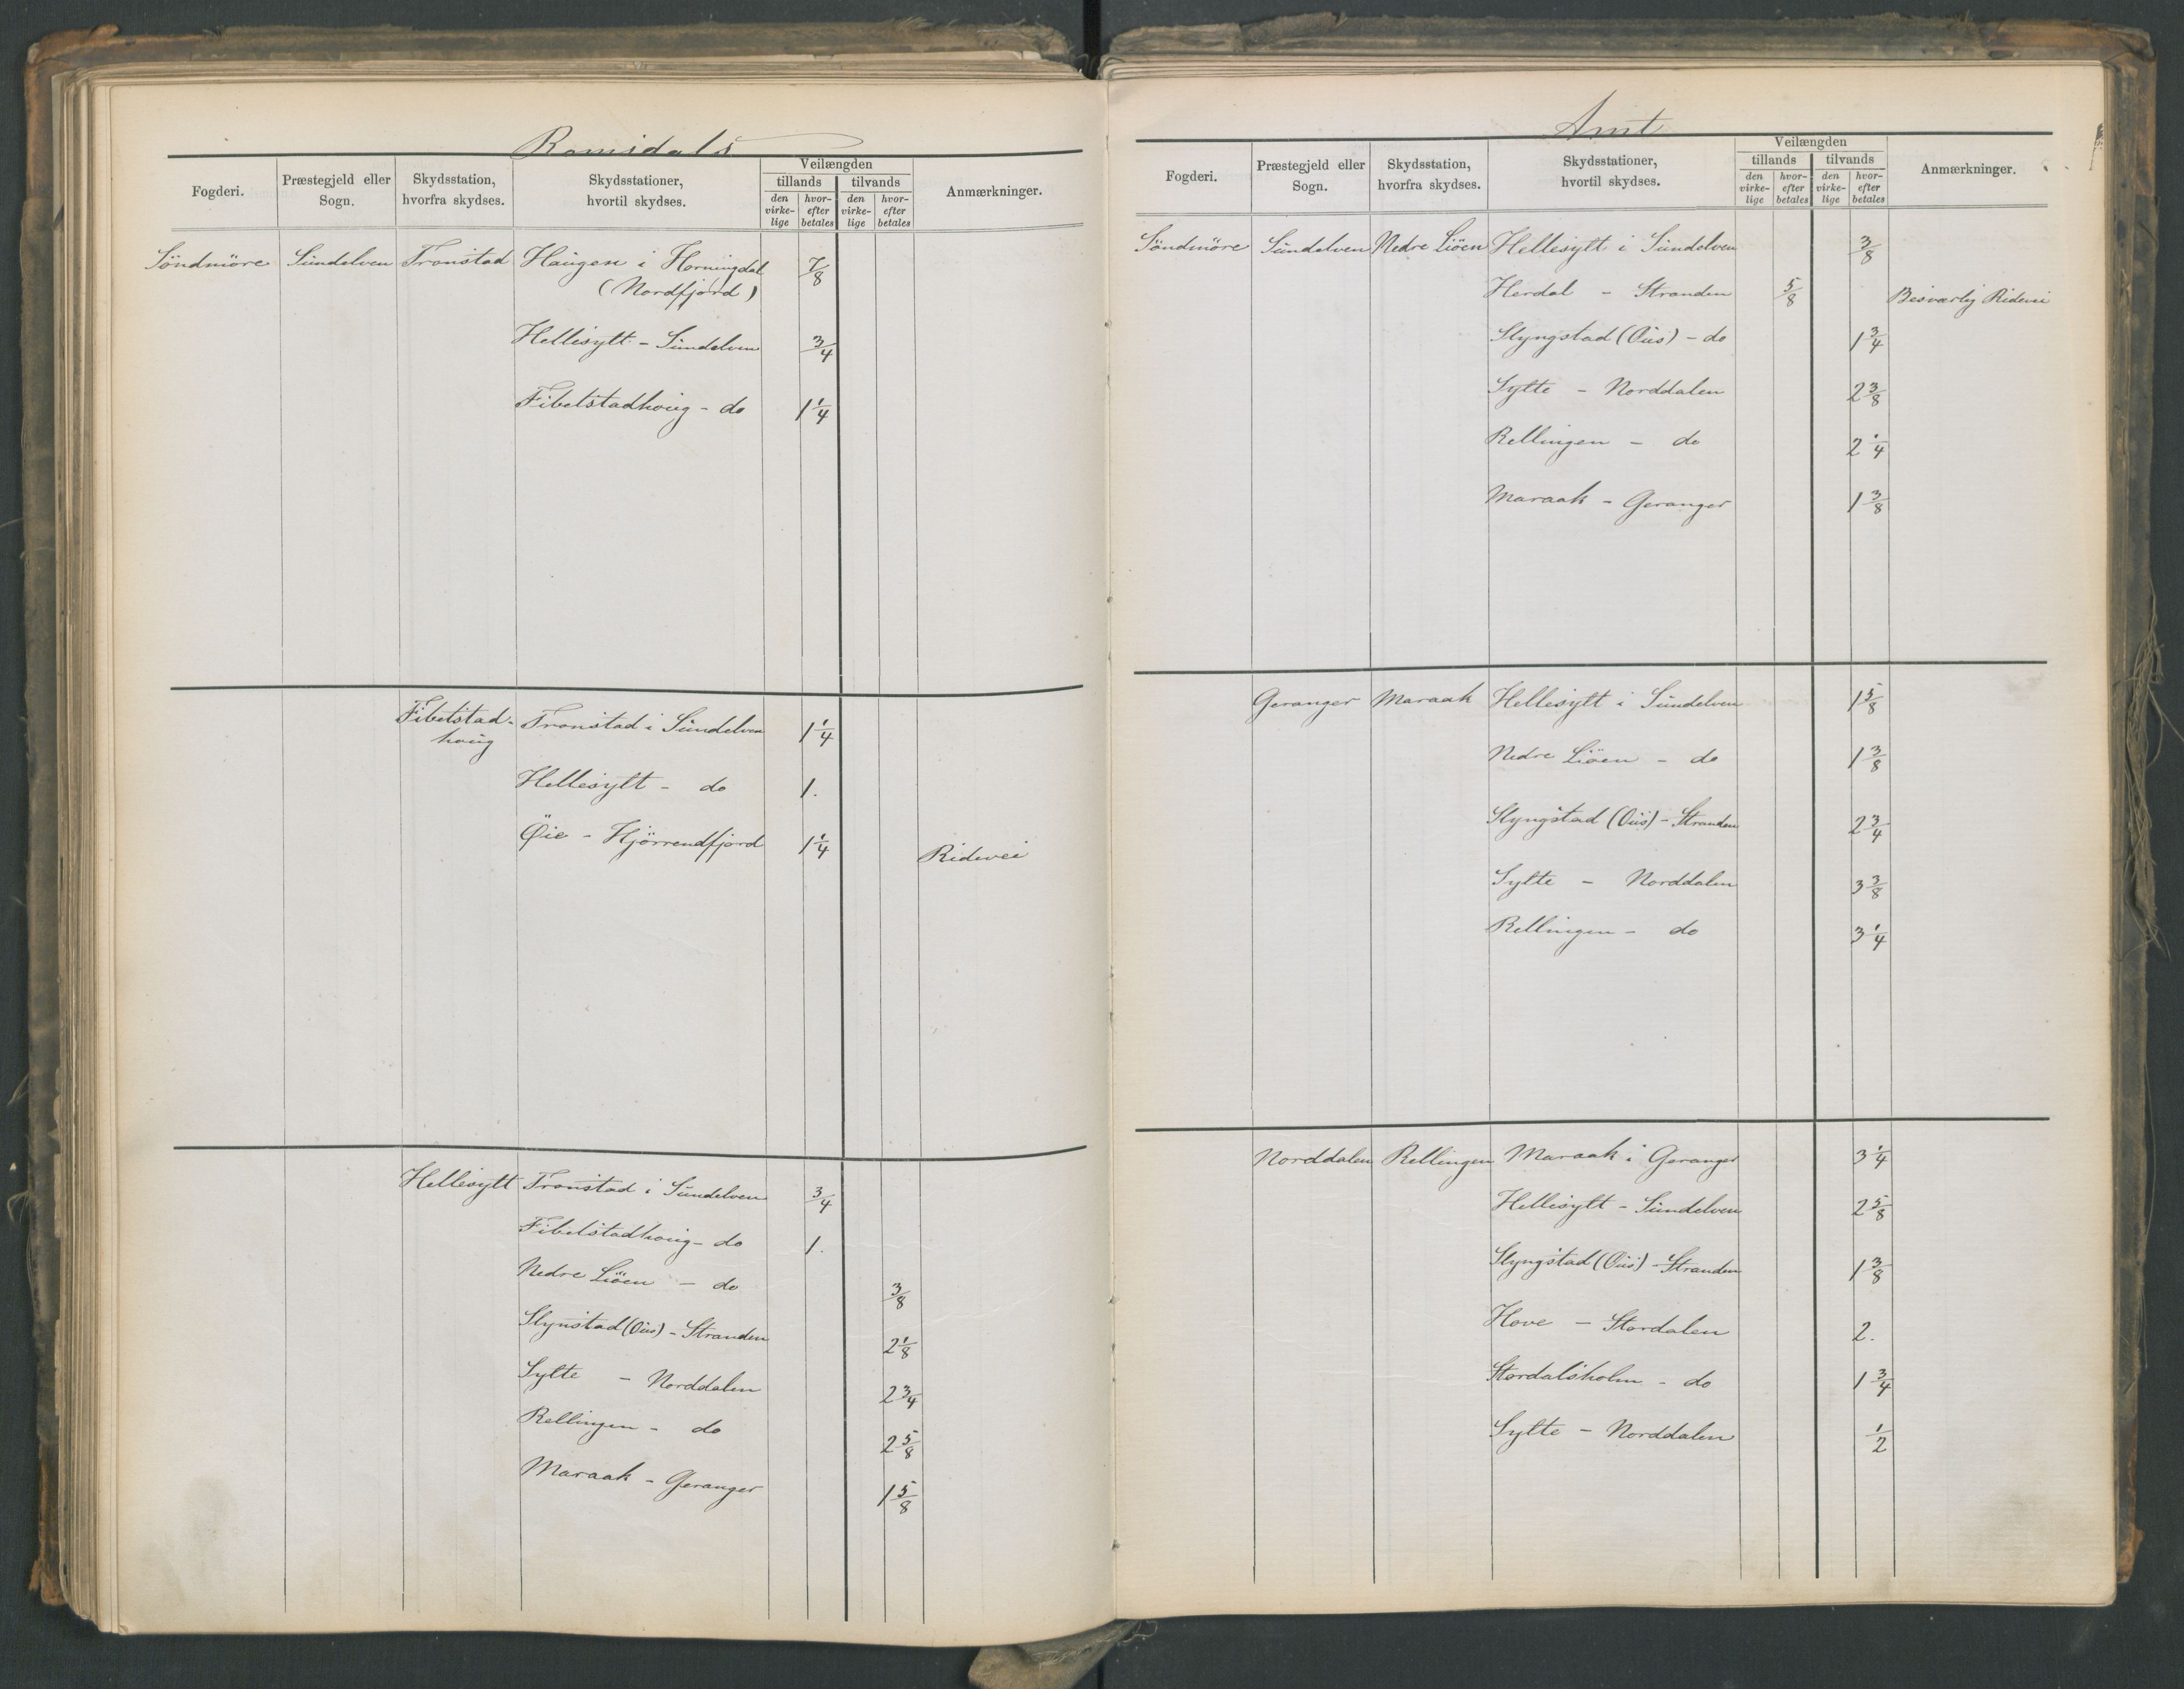 Romsdals
Fogderi. Præstegjeld eller Sogn. Skydsstation, hvorfra skydses. Skydsstationer, hvortil skydses. Veilængden Anmærkninger.
tillands tilvands
den virke-lige hvor-efter betales den virke-lige hvor-efter betales
Söndmöre Sundelven Tronstad Haugen i Horningdal 7/8
(Nordfjord)
Hellesylt - Sundelven 3/4
Fibelstadhoug - do 1 1/4
Fibelstad- Tronstad i Sundelven 1 1/4
houg
Hellesylt - do 1.
Øie - Hjörrendfjord 1 1/4 Ridevei
Hellesylt Tronstad i Sundelven 3/4
Fibelstadhoug - do 1.
Nedre Liöen - do 3/8
Slynstad (Uus) - Stranden 2 1/8
Sylte - Norddalen 2 3/4
Rellingen - do 2 5/8
Maraak - Geranger 1 5/8
Amt
Fogderi. Præstegjeld eller Sogn. Skydsstation, hvorfra skydses. Skydsstationer, hvortil skydses. Veilængden Anmærkninger.
tillands tilvands
den virke-lige hvor-efter betales den virke-lige hvor-efter betales
Söndmöre Sundelven Nedre Liöen Hellesylt i Sundelven 3/8
Herdal - Stranden 5/8 Besværlig Ridevei
Slyngstad (Uus) - do 1 3/4
Sylte - Norddalen 2 3/8
Rellingen - do 2 1/4
Maraak - Geranger 1 3/8
Geranger Maraak Hellesylt i Sundelven 1 5/8
Nedre Liöen - do 1 3/8
Slyngstad (Uus) - Stranden 2 3/4
Sylte - Norddalen 3 3/8
Rellingen - do 3 1/4
Norddalen Rellingen Maraak i Geranger 3 1/4
Hellesylt - Sundelven 2 5/8
Slyngstad (Uus) - Stranden 1 3/8
Hove - Stordalen 2.
Stordalsholm - do 1 3/4
Sylte - Norddalen 1/2